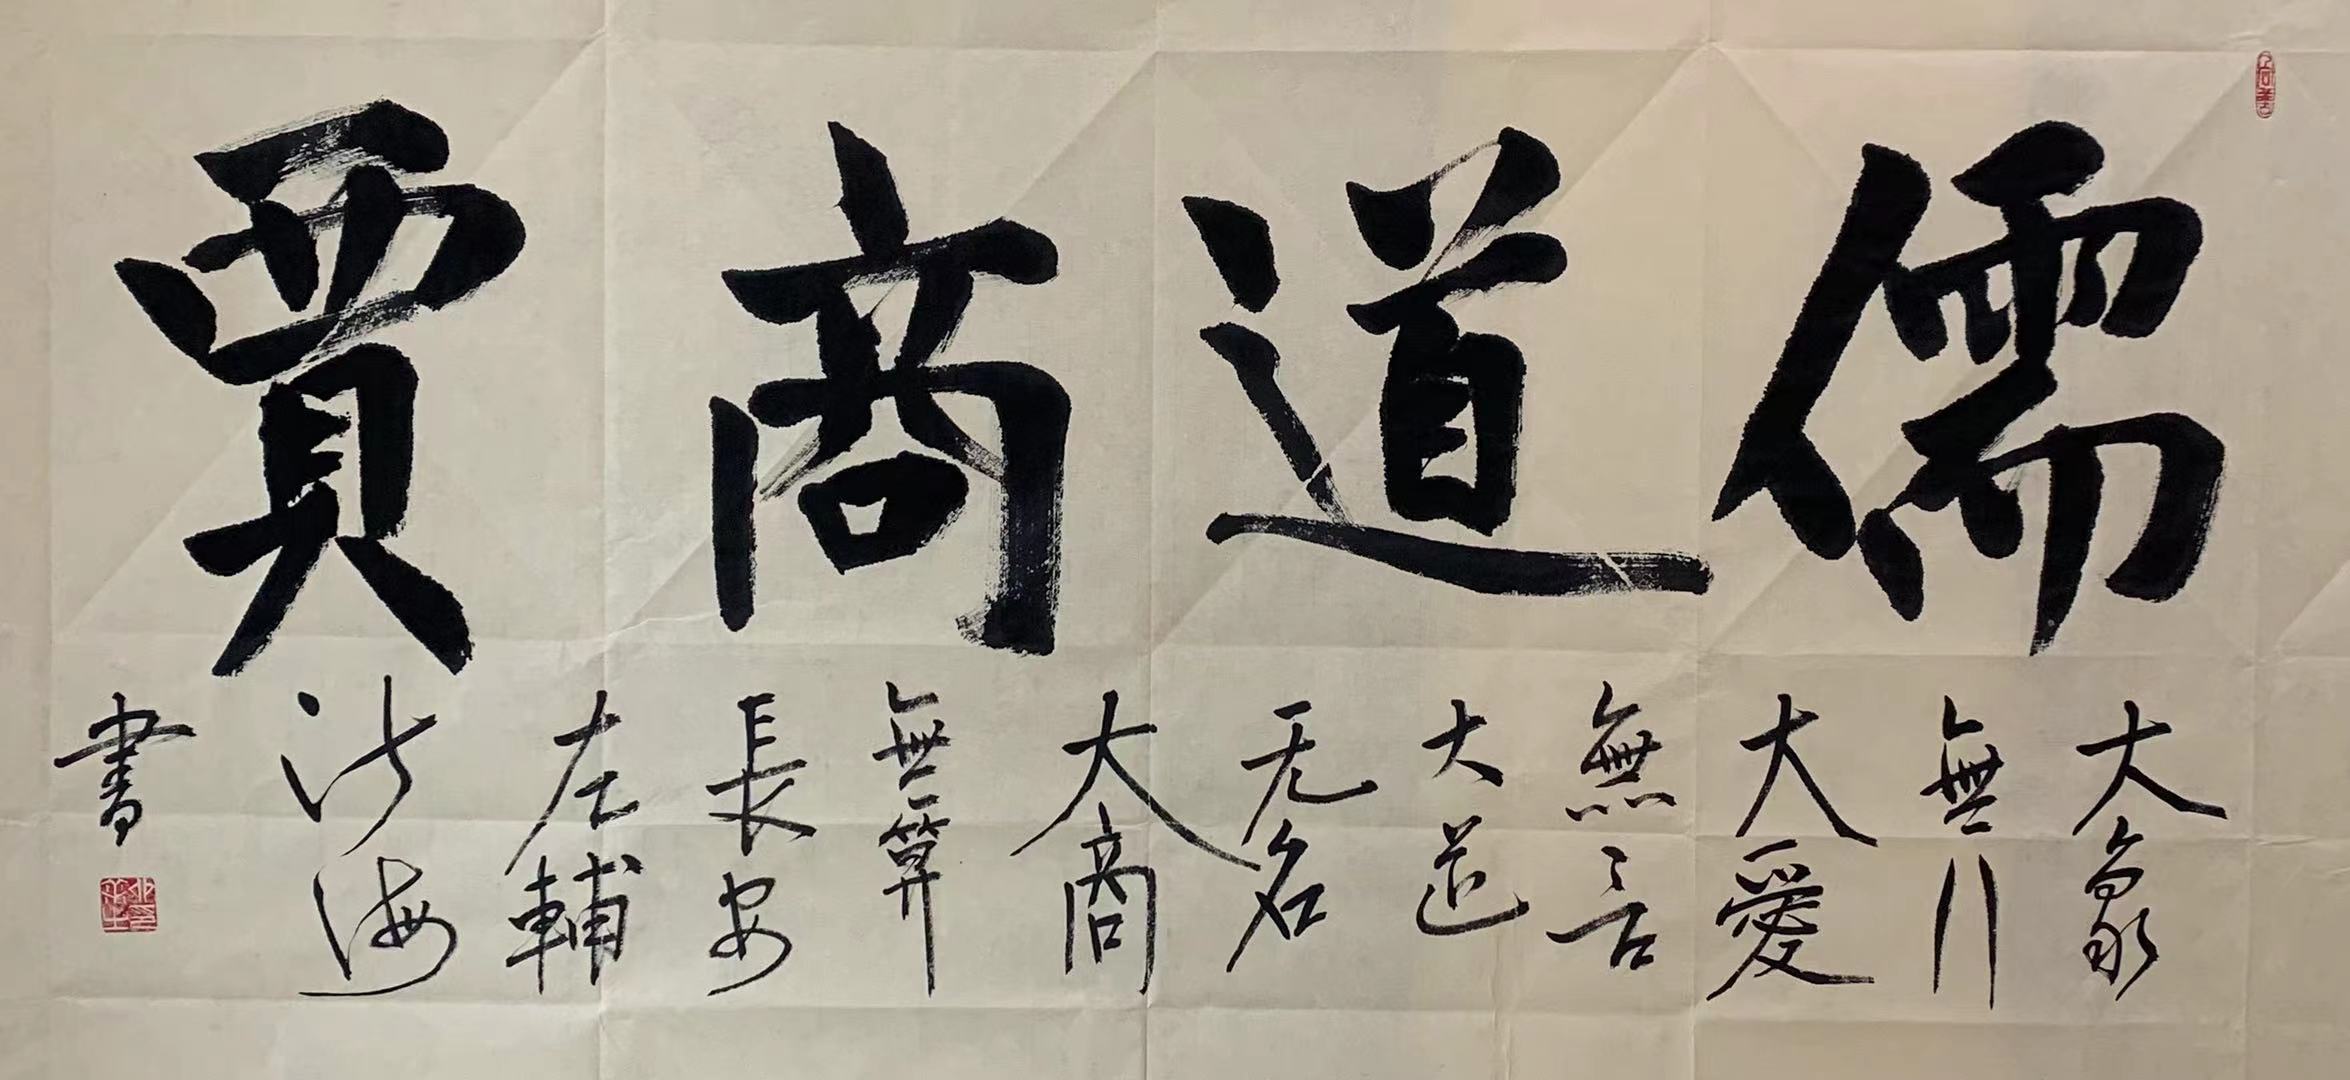 儒道商賈
大象
無
大愛
無言
大道
无名
大商
無算
長安
左輔
海
書